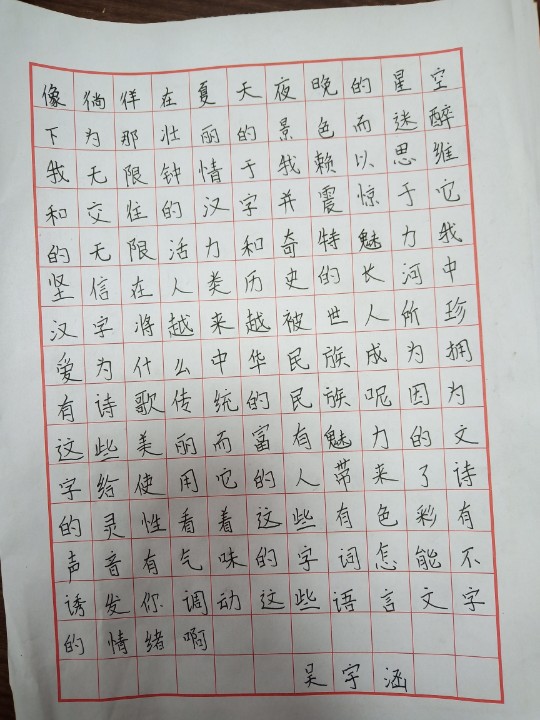 像徜徉在夏天夜晚的星空
下为那壮丽的景色而迷醉
我无限钟情于我赖以思维
和交往的汉字并震惊于它
的无限活力和奇特魅力我
坚信在人类历史的长河中
汉字将越来越被世人所珍
爱为什么中华民族成为拥
有诗歌传统的民族呢因为
这些美丽而富有魅力的文
字给使用它的人带来了诗
的灵性看着这些有色彩有
声音有气味的字词怎能不
诱发你调动这些语言文字
的情绪啊
吴宇涵